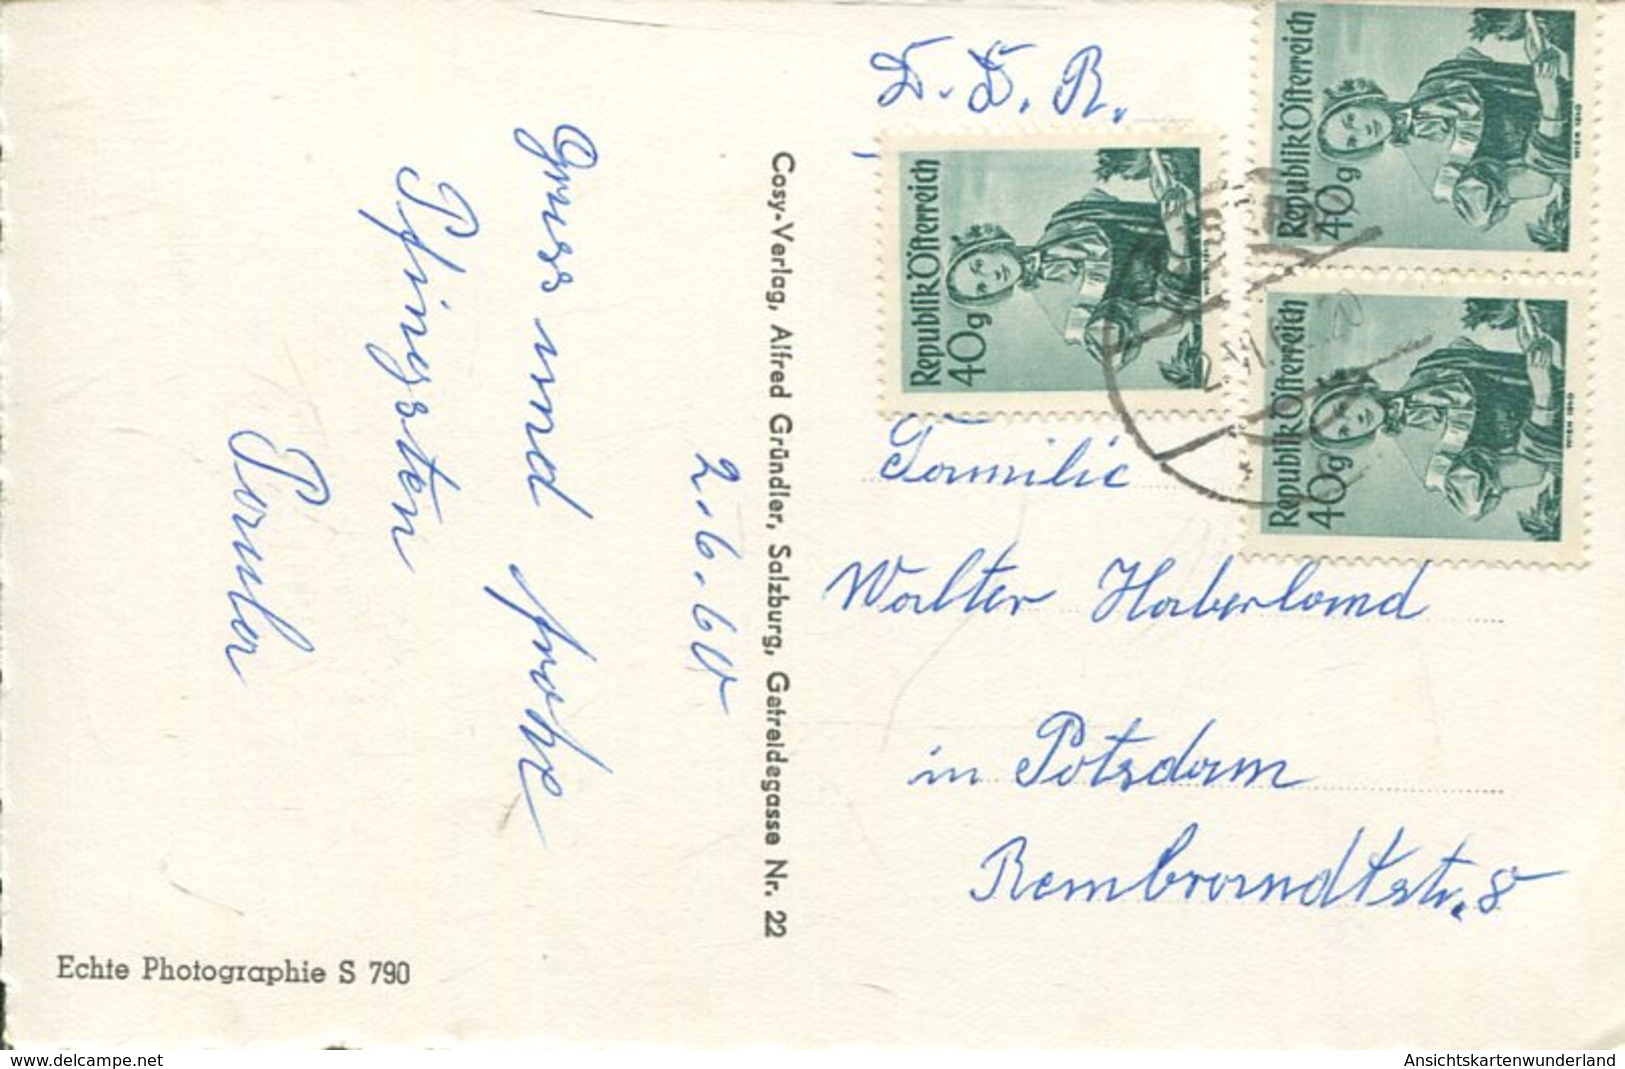 D. D. R.
Republik Österreich
40g
WIEN 1840
Republik Österreich
40g
Republik Österreich
40g
WIEN 1840
Familie
Walter Haberland
in Potsdam
Rembrandtstr. 8
Cosy-Verlag, Alfred Gründler, Salzburg, Getreidegasse Nr. 22
2.6.60
Gruss und frohe
Pfingsten
Echte Photographie S 790
www.delcampe.net
Ansichtskartenwunderland